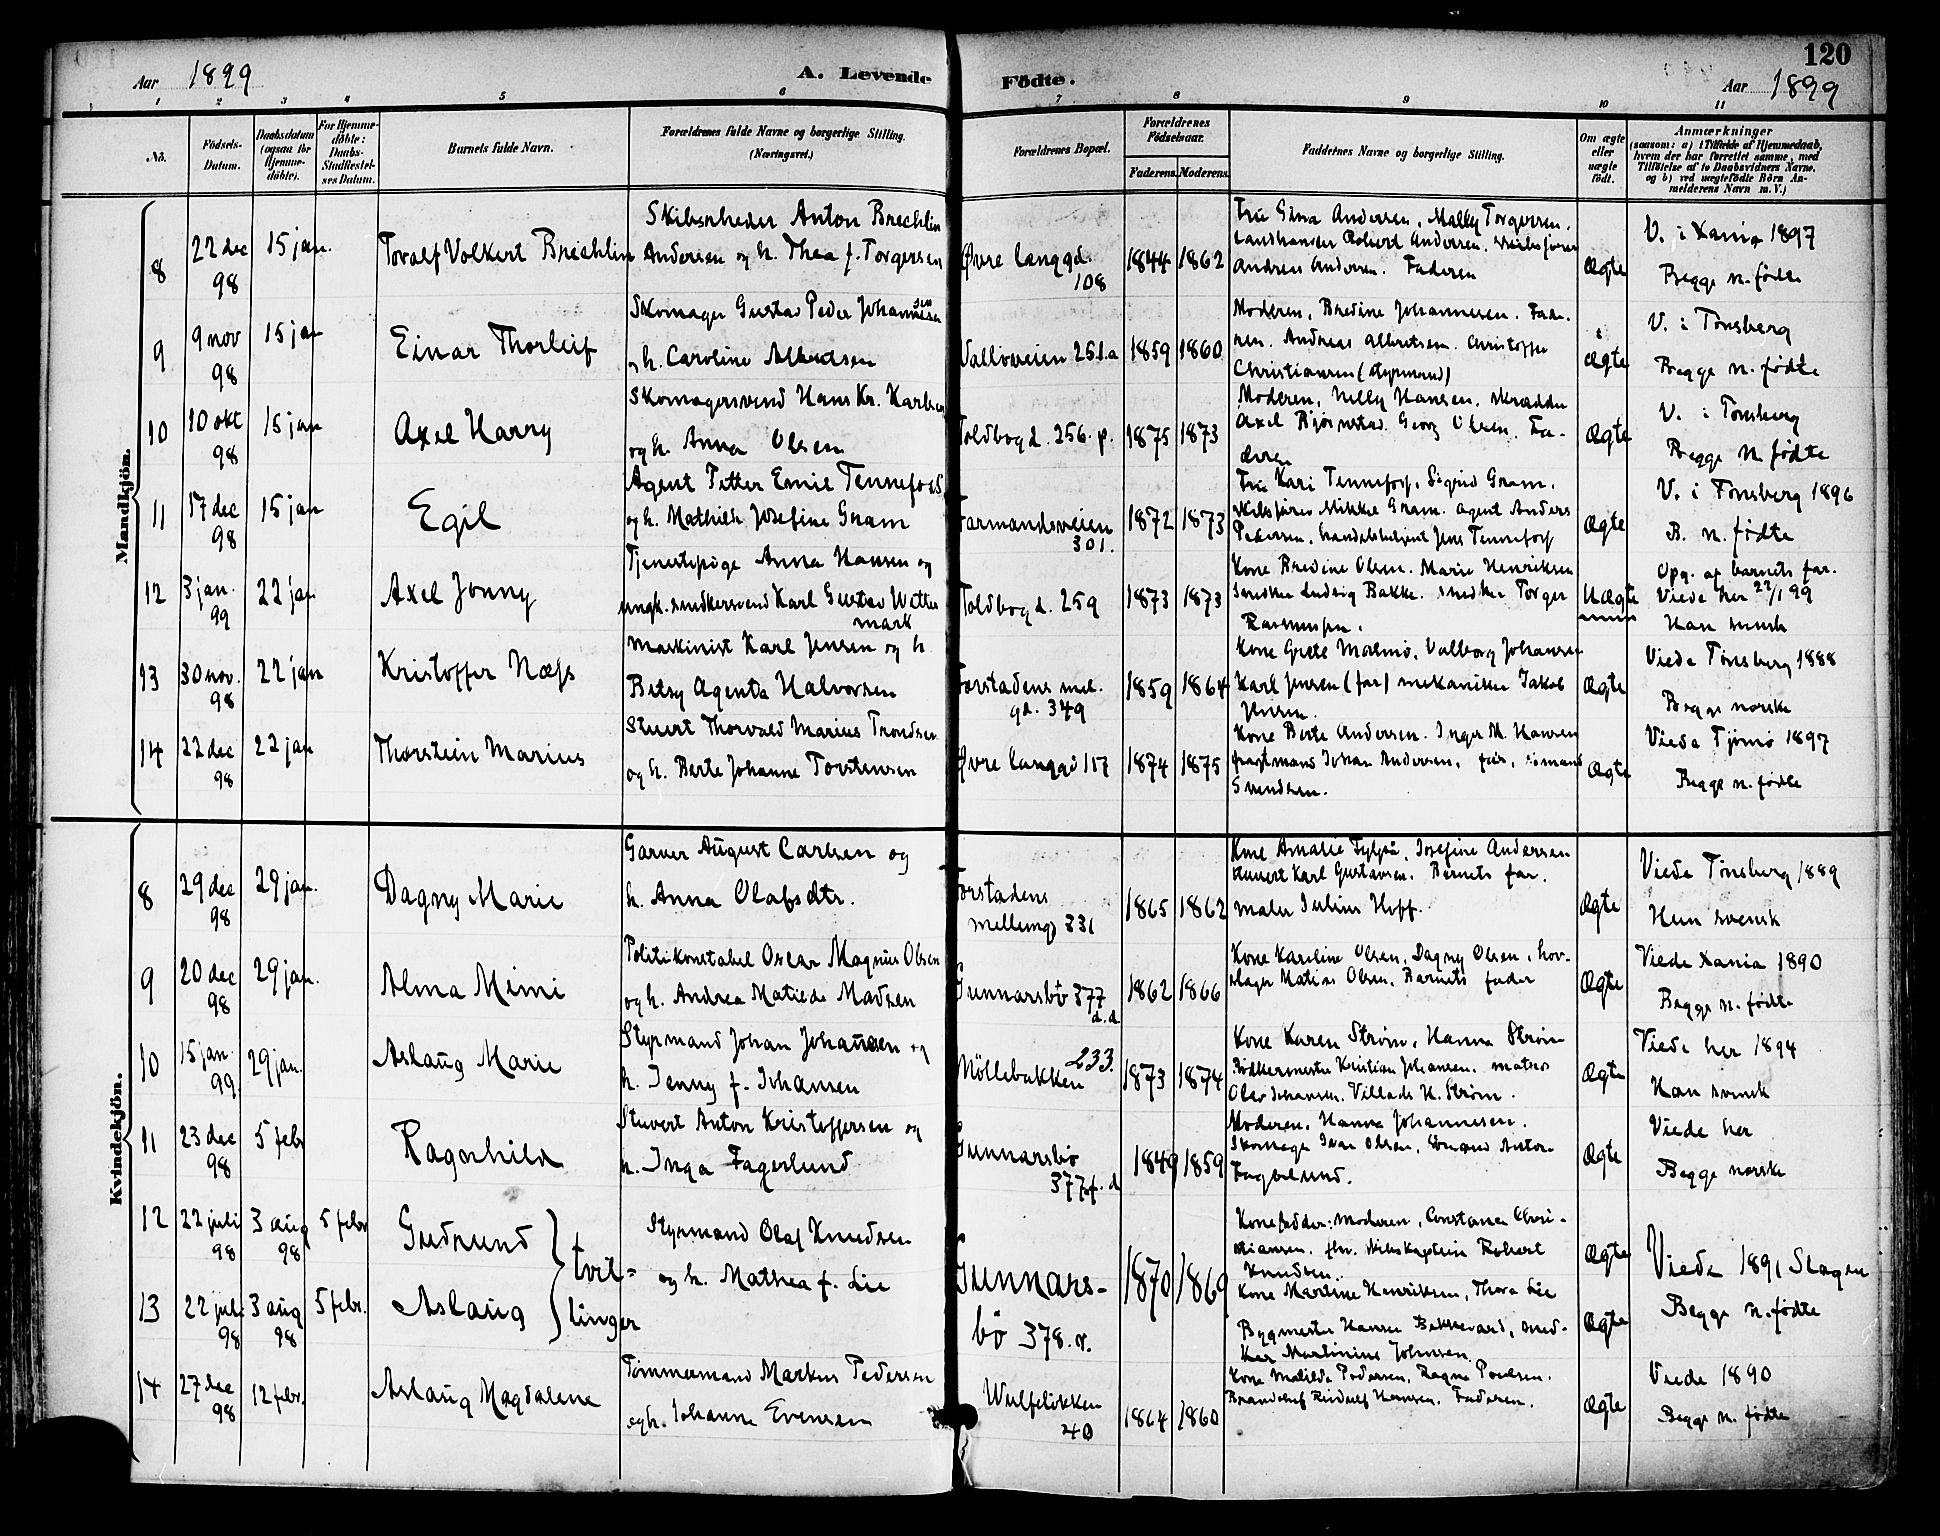 120
Aar 1899
A. Levende Födte.
Aar 1899
1 2 3 4 5 6 7 8 9 10 11
No.
Födsels-Datum.
Daabsdatum (ogsaa for Hjemme-döbte).
For Hjemme-döbte: Daabs-Stadfæstel-ses Datum.
Barnets fulde Navn.
Forældrenes fulde Navne og borgerlige Stilling. (Næringsvei.)
Forældrenes Bopæl.
Forældrenes Födselsaar.
Faderens. Moderens.
Faddernes Navne og borgerlige Stilling.
Om ægte eller uægte födt.
Anmærkninger
(saasom: a) i Tilfælde af Hjemmedaab, hvem der har forrettet samme, med Tilföielse af to Daabsvidners Navne, og b) ved uægtefödte Börn An-melderens Navn m. V.)
Mandkjön.
8 22 dec 98 15 jan. Toralf Volkert Brechlin
Skibsrheder Anton Brechlin
Andersen og h. Thea f. Torgersen
Øvre langgd. 108
1844 1862
Andersen, Mally Torgersen.
Andreas Andersen. Faderen
Ægte
V. i Xania 1897
Begge n. födte
9 9 nov 98 15 jan Einar Thorleif
Skomager Gustav Peder Johannesen
og h. Caroline
Valløveien 251.a
1859 1860
Moderen, Bredine Johannesen. Fade-
ren. Andreas Albretsen. Christoffer
Christiansen (styrmand)
Ægte
V. i Tønsberg
Begge n. födte
10 10 okt 98 15 jan Axel Harry
Skomagersvend Hans Kr. Karlsen
og h. Anna Olsen
Toldbogd. 256. p.
1875 1873
Moderen, Nelly Hansen, skrædder
Axel Bjørnstad. Georg Olsen. Fa-
deren
Ægte
V. i Tønsberg
Begge n. födte
11 17 dec 98 15 jan Egil
Agent Petter Emil Tennefoss
og h. Mathilde Josefine Gram
Farmandsveien 301.
1872 1873
Fru Kari Tennefoss, Sigrid Gram.
skibsfører Mikkel Gram. agent Anders
Pedersen, handelsbetjent Jens Tennefoss
Ægte
V. i Tønsberg 1896
B. n. födte
12 3 jan. 99 22 jan Axel Jonny
Tjenestepige Anna Hansen og
ungk. snedkersvend Karl Gustav Wetter
mark
Toldbogd. 259
1873 1873
Kone Bredine Olsen. Marie Henriksen
Snedker Ludvig Bakke. snedker Torger
Rasmussen.
Uægte
Opg. af barnets far.
Viede her 22/1 99
Han svensk
13 30 nov. 98 22 jan Kristoffer Næss
Maskinist Karl Jensen og h
Betsy Agenta Halvorsen
Forstadens mel. gd. 349
1859 1864
Kone Grete Malmø, Valborg Johansen
Karl Jensen (far) mekaniker Jakob
Jensen.
Ægte
Viede Tønsberg 1888
Begge norske
14 22 dec 98 22 jan Thorstein Marius
Stuert Thorvald Marius Trondsen
og h. Berte Johanne Torstensen
Øvre langgd 117
1874 1875
Kone Berte Andersen. Inger M. Hansen
fragtmand Johan Andersen, far, sømand
Svendsen.
Ægte
Viede Tjømø 1897
Begge n. födte
Kvindekjön.
8 29 dec 98 29 jan. Dagny Marie
Garver August Carlsen og
h. Anna Olafsdtr.
Forstadens mellemg 331
1865 1862
Kone Amalie Josefine Andersen
stuert Karl Gustavsen. Barnets far.
maler Julius Hoff.
Ægte
Viede Tønsberg 1889
Hun svensk
9 20 dec 98 29 jan. Alma Mimi
Politikonstabel Oscar Magnus Olsen
og h. Andrea Matilde Madsen
Gunnarsbö 377 d.d
1862 1866
Kone Karoline Olsen, Dagny Olsen, hov-
slager Matias Olsen, Barnets fader
Ægte
Viede Xania 1890
Begge n. födte
10 15 jan. 99 29 jan. Aslaug Marie
Styrmand Johan Johansen og
h. Jenny f. Johansen
Möllebakken 233.
1873 1874
Kone Karen Strøm, Hanna Strøm
Bödkermester Kristian Johansen. matros
Olav Johansen. Villads H. Strøm.
Ægte
Viede her 1894
Han svensk
11 23 dec 98 5 febr Ragnhild
Stuvert Anton Kristoffersen og
h. Inga Fagerlund
Gunnarsbö 377f. d
1849 1859
Moderen, Hanna Johannesen.
Skomager Iver Olsen, sömand Anton
Fagerlund.
Ægte
Viede her
Begge norske
12 22 juli 98 3 aug 98 5 febr Gudrund
13 22 juli 98 3 aug 98 5 febr. Aslaug
tvil-
linger
Styrmand Olaf Knudsen
og h. Mathea f. Lie
Gunnars-
bö 378.
1870 1869
Konefadder: Moderen, Constance Chri-
stiansen. skibskaptein Robert
Knudsen.
Kone Martine Henriksen, Thora Lie
Bygmester Hansen Bekkevard, sned-
ker Martinius Johnsen.
Ægte
Ægte
Viede 1891 Slagen
Begge n. födte
14 27 dec 98 12 febr. Aslaug Magdalene
Tömmermand Markus Pedersen
og h. Johanne Evensen
Wulfeløkken 40
1864 1860
Kone Matilde Pedersen, Ragna Poulsen.
Hansen. Faderen.
Ægte
Viede 1890
Begge n. födte